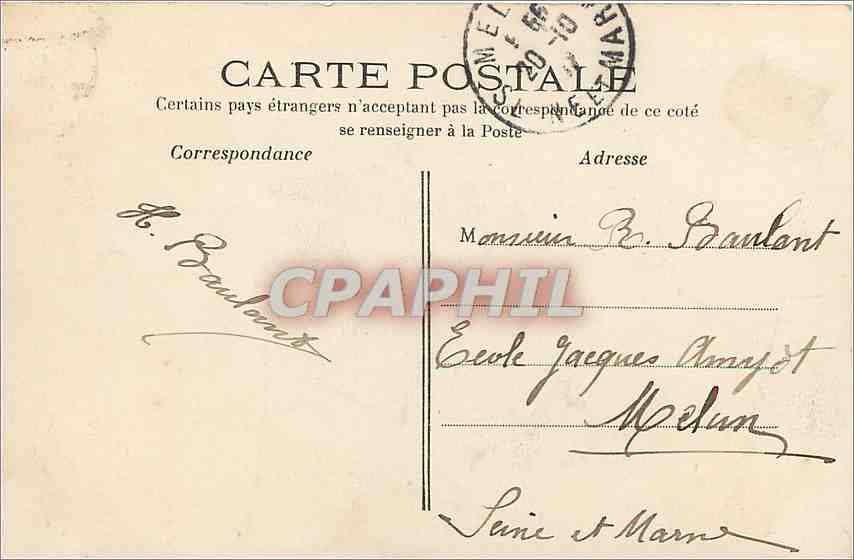 CARTE POSTALE
Certains pays étrangers n'acceptant pas la correspondance de ce coté
se renseigner à la Poste
Correspondance
Adresse
H. Baulant
Monsieur R. Baulant
Ecole Jacques Amyot
Melun
Seine et Marne
CPAPHIL